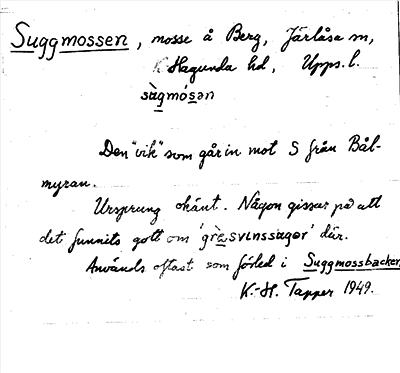 Suggmossen, mosse å Berg, Järlåsa sn,
Hagunda hd, Upps. l.
sùgmósən
Den "vik" som går in mot S från Bål-
myran.
Ursprung okänt. Någon gissar på att
det funnits gott om 'gràsvinssugor' där.
Används oftast som förled i Suggmossbacken
K.-H. Tapper 1949.